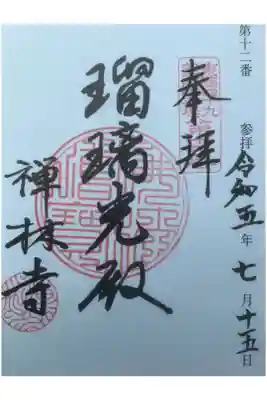 第十二番
参拝 令和五年 七月十五日
奉拝
瑠璃光殿
禅林寺